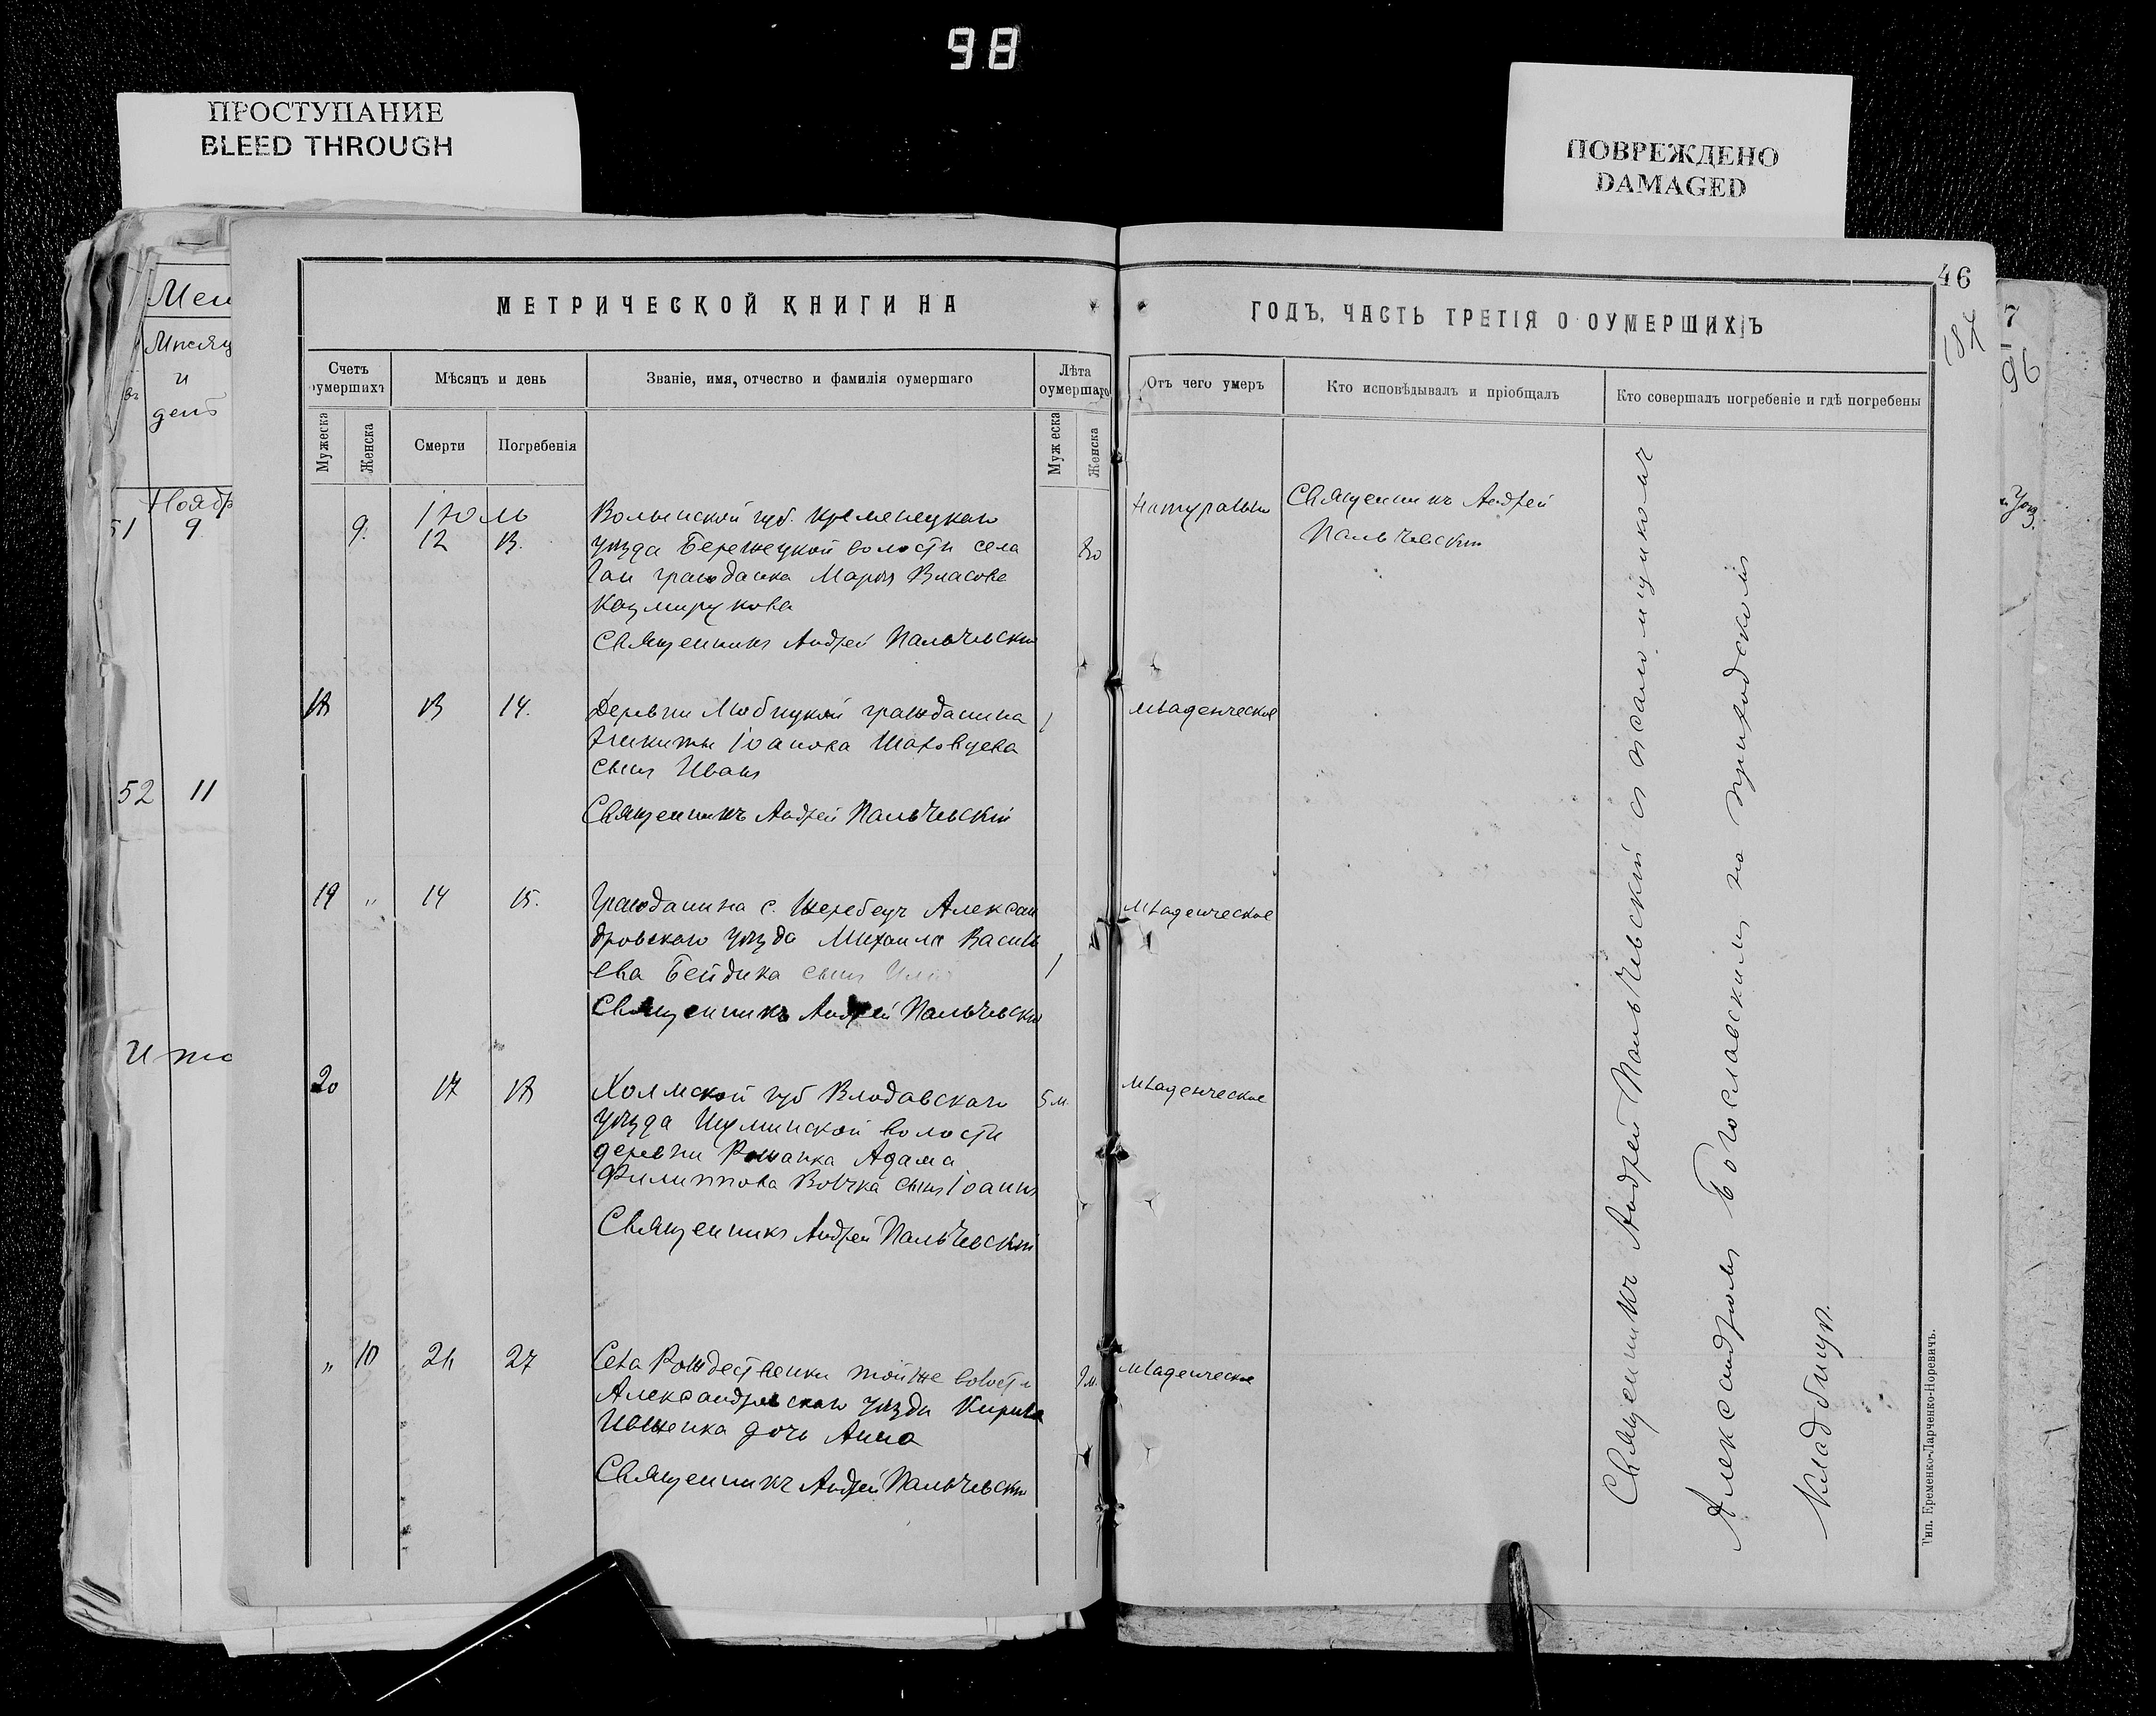 98
ПРОСТУПАНИЕ
BLEED THROUGH
ПОВРЕЖДЕНО
DAMAGED
46
187
7
96
Мѣсяц
и
день
Ноябр
51 9
52 11
МЕТРИЧЕСКОЙ КНИГИ НА
ГОДЪ, ЧАСТЬ ТРЕТІЯ О ОУМЕРШИХЪ
Счетъ оумершихъ
Мѣсяцъ и день
Званіе, имя, отчество и фамилія оумершаго
Лѣта оумершаго
Отъ чего умеръ
Кто исповѣдывалъ и пріобщалъ
Кто совершалъ погребеніе и гдѣ погребены
Мужеска
Женска
Смерти
Погребенія
Мужеска
Женска
Іюль
9. 12 13.
Волынской губ. Кременецкаго
уѣзда Бережецкой волости села
гражданка Марія Власова
80
Священникъ Андрей Пальчевскій
Священникъ Андрей
Пальчевскій
18 13 14.
Деревни Любицкой гражданина
Никиты Іоанова
сынъ Иванъ
1
младенческое
Священникъ Андрей Пальчевскій
19 " 14 15.
Гражданина с. Жеребецъ Алексан
дровскаго уѣзда Михаила Василь
ева Бейдика сынъ
1
младенческое
Священникъ Андрей Пальчевскій
20 17 18
Холмской губ Влодавскаго
уѣзда волости
деревни Адама
Филиппова сынъ Іоаннъ
5 м.
младенческое
Священникъ Андрей Пальчевскій
" 10 26 27
Села Рождественки тойже волости
Александровскаго уѣзда Кирила
Ивженка дочь Анна
9 м.
младенческое
Священникъ Андрей Пальчевскій
Священникъ Андрей Пальчевскій съ псаломщикомъ
Александромъ Богославскимъ на приходскомъ
кладбищѣ.
Тип. Еременко-Ларченко-Норевичъ.